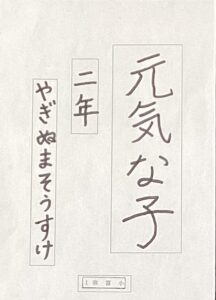 元気な子
二年
やぎぬまそうすけ